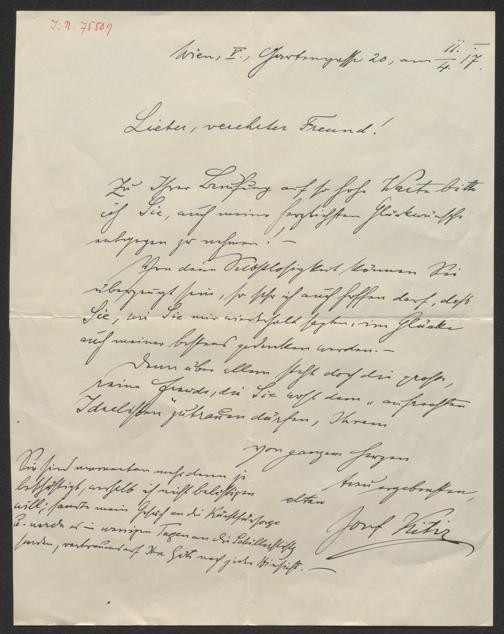 I. N. 75509
Wien, V., Gartengasse 20, am 11./4. 17.
Lieber, verehrter Freund!
Zu Ihrer Berufung auf so hohe Warte bitte
ich Sie, auch meine herzlichsten Glückwünsche
entgegen zu nehmen! –
Von deren Selbstlosigkeit können Sie
überzeugt sein, so sehr ich auch hoffen darf, daß
Sie, wie Sie mir wiederholt sagten, im Glücke
auch meiner bestens gedenken werden. –
Denn über allem steht doch die große,
reine Freude, die Sie wohl dem „aufrechten
Idealisten" zutrauen dürfen, Ihrem
von ganzem Herzen
treu ergebensten,
alten
Josef Kitir
Sie sind momentan mehr denn je
beschäftigt, weshalb ich nicht belästigen
will; sandte mein Gesuch an die
u. werde es in wenigen Tagen an die Schillerstiftg
senden, vertrauend auf Ihre Güte nach jeder Hinsicht. –